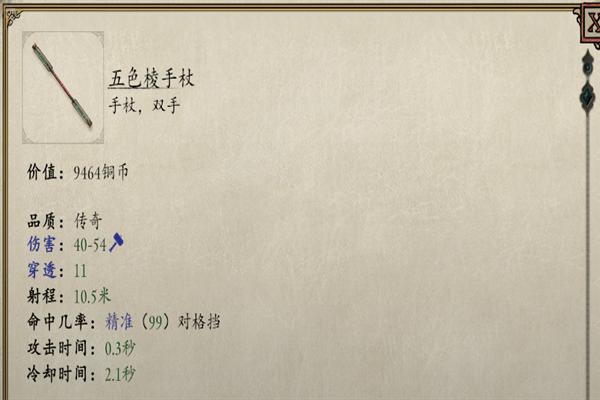 五色棱手杖
手杖，双手
价值：9464铜币
品质：传奇
伤害：40-54
穿透：11
射程：10.5米
命中几率：精准（99）对格挡
攻击时间：0.3秒
冷却时间：2.1秒